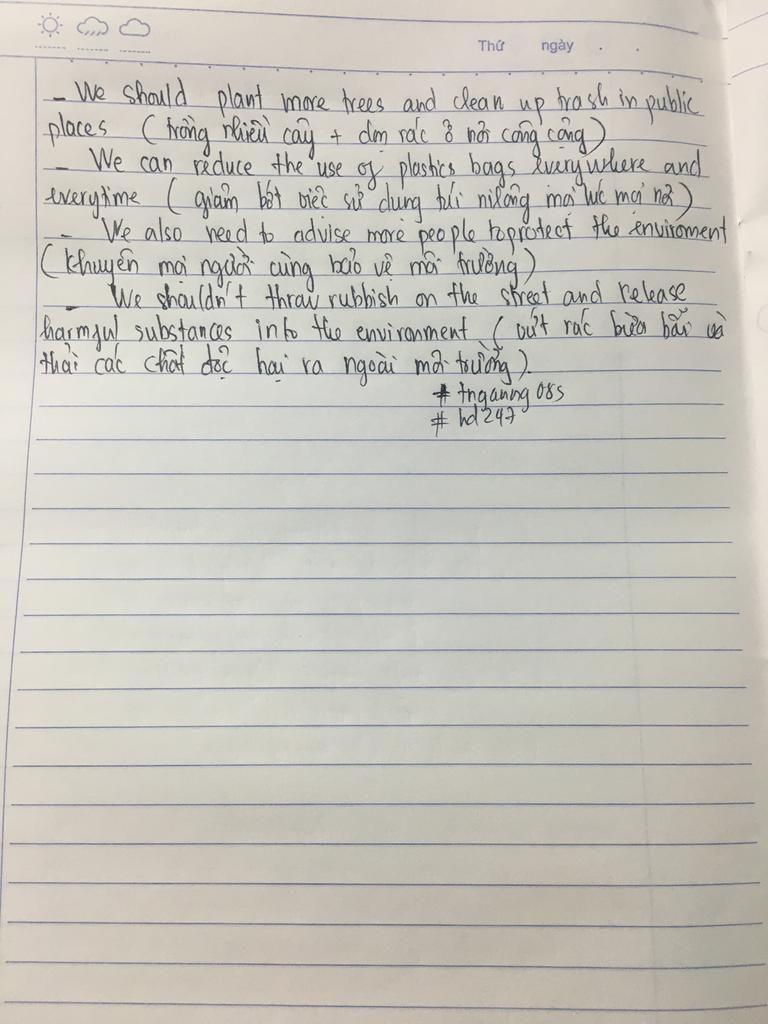 Thứ ngày . .
- We should plant more trees and clean up trash in public
places (trồng nhiều cây + dọn rác ở nơi công cộng)
- We can reduce the use of plastics bags everywhere and
everytime (giảm bớt việc sử dụng túi nilông mọi lúc mọi nơi)
- We also need to advise more people to protect the enviroment
(khuyên mọi người cùng bảo vệ môi trường)
- We shouldn't thraw rubbish on the street and release
harmful substances into the environment (vứt rác bừa bãi và
thải các chất độc hại ra ngoài môi trường).
# tnganng 08s
# hd247